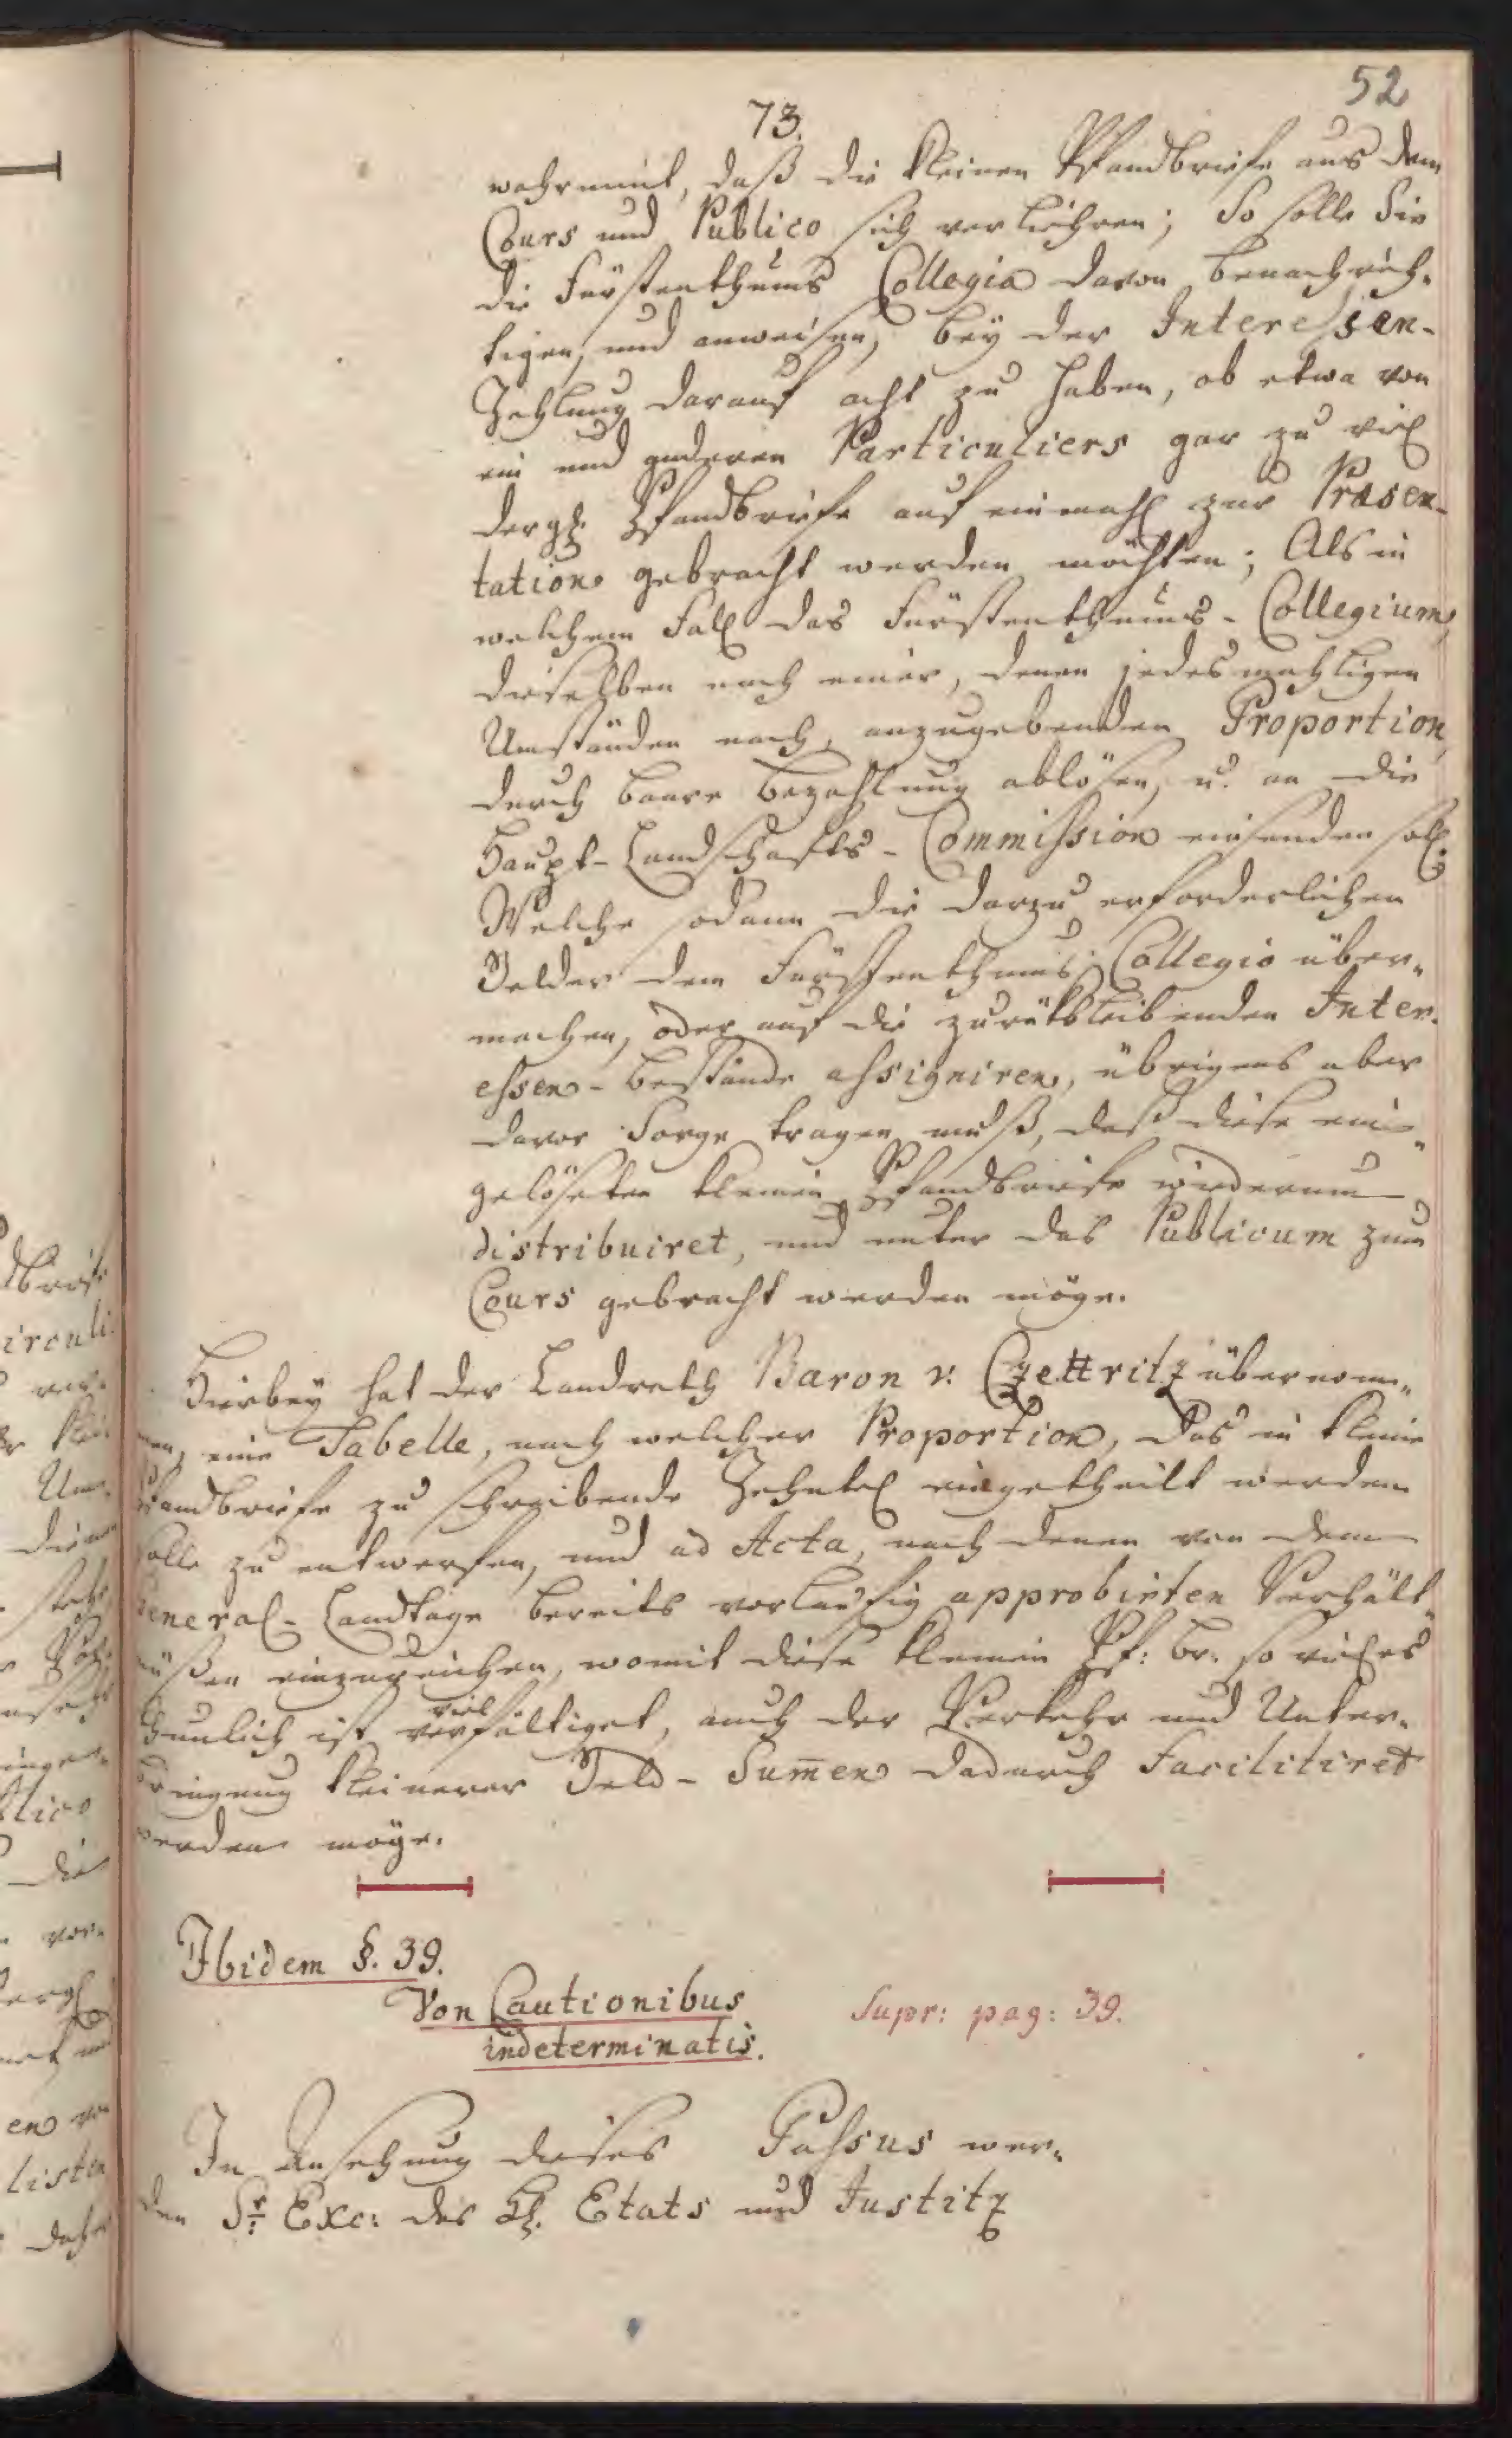 52
73.
wahrnimt, daß die kleinen Pfandbriefe aus dem
Cours und Publico sich verliehren; So solle Sie
die Fürstenthums Collegia davon benachrich-
tigen, und anweisen, bey der Interessen-
Zahlung darauf acht zu haben, ob etwa von
ein und anderen Particuliers gar zu viel
dergl. Pfandbriefe auf einmahl zur Præsen-
tation gebracht werden möchten; Als in
welchem Fall das Fürstenthums-Collegium,
dieselben nach einer, denen jedesmahligen
Umständen nach, anzugebenden Proportion,
durch baare Bezahlung ablösen, u. an die
Haupt-Landschafts-Commission einsenden soll.
Welche sodann die darzu erforderlichen
Gelder dem Fürstenthums Collegio über-
machen, oder auf die zurükbleibenden Inter-
essen-Bestände assigniren, übrigens aber
davor Sorge tragen muß, daß diese ein-
gelöseten kleinen Pfandbriefe wiederum
distribuiret, und unter das Publicum zum
Cours gebracht werden möge.
Hierbey hat der Landrath Baron v: Czettritz übernom-
men, eine Tabelle, nach welcher Proportion, das in kleine
Pfandbriefe zu schreibende Zehntel eingetheilt werden
solle zu entwerfen, und ad Acta, nach denen von dem
General-Landtage bereits vorläufig approbirten Verhält-
nüßen einzureichen, womit diese kleinen Pf: br: so viel es
thunlich ist vervielfältiget, auch der Verkehr und Unter-
bringung kleinerer Geld-Sum̄en dadurch facilitiret
werden möge.
Ibidem §. 39.
Von Cautionibus Supr: pag: 39.
indeterminatis.
In Ansehung dieses Passus wer-
den Sr. Exc: des Etats und Justitz